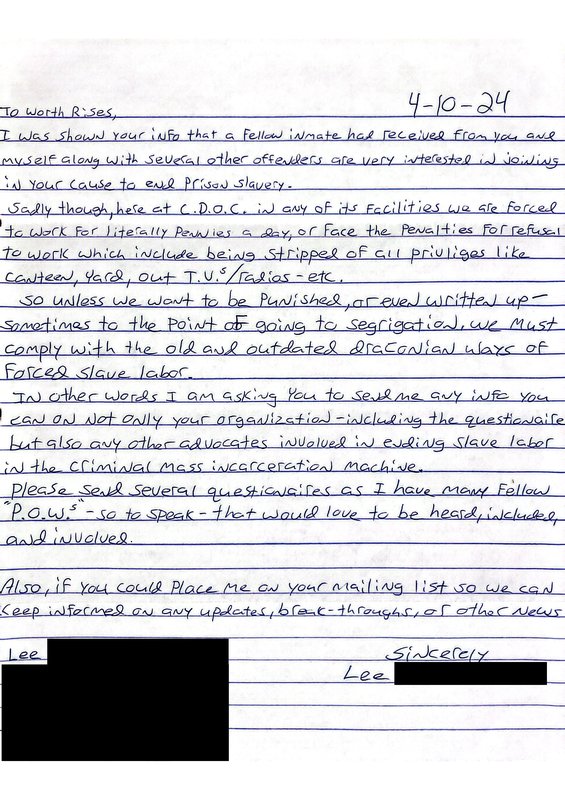 4-10-24
To Worth Rises,
I was shown your info that a fellow inmate had received from you and
myself along with several other offenders are very interested in joining
in your cause to end prison slavery.
Sadly though, here at C.D.O.C. in any of its facilities we are forced
to work for literally pennies a day, or face the penalties for refusal
to work which include being stripped of all priviliges like
canteen, yard, out T.V.s/radios - etc.
So unless we want to be punished, or even written up -
sometimes to the point of going to segrigation, we must
comply with the old and outdated draconian ways of
forced slave labor.
In other words I am asking you to send me any info you
can on not only your organization - including the questionaire
but also any other advocates involved in ending slave labor
in the criminal mass incarceration machine.
Please send several questionaires as I have many fellow
"P.O.W.s" - so to speak - that would love to be heard, included,
and involved.
Also, if you could place me on your mailing list so we can
keep informed on any updates, break-throughs, or other news
Sincerely
Lee
Lee